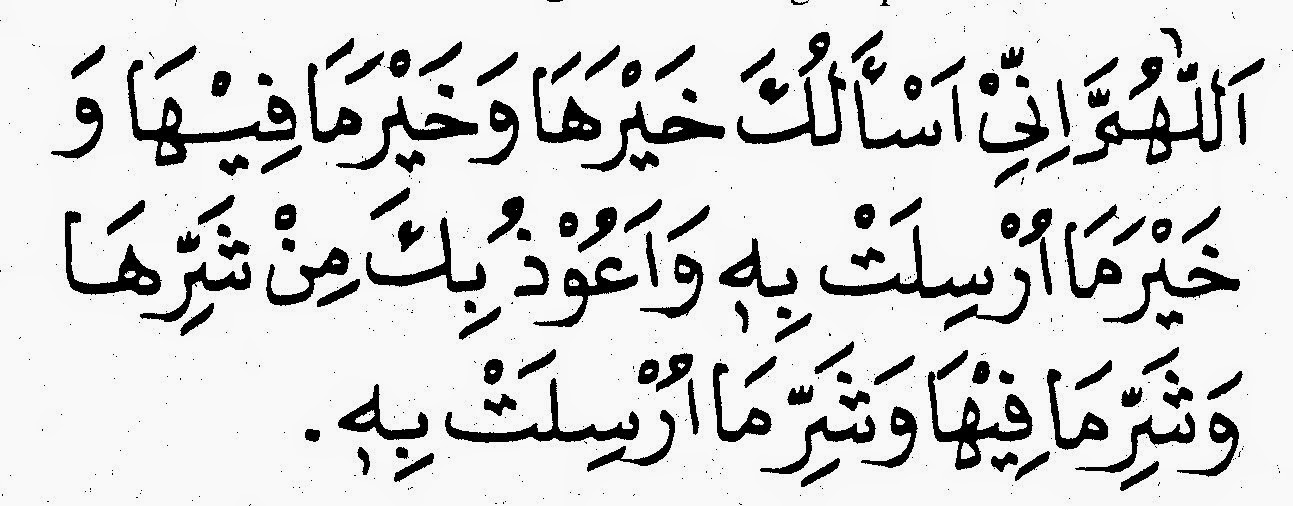 اَللّٰهُمَّ اِنِّيْ اَسْأَلُكَ خَيْرَهَا وَخَيْرَمَا فِيْهَا وَ
خَيْرَمَا اُرْسِلَتْ بِهٖ وَاَعُوْذُ بِكَ مِنْ شَرِّهَا
وَشَرِّمَا فِيْهَا وَشَرِّمَا اُرْسِلَتْ بِهٖ.